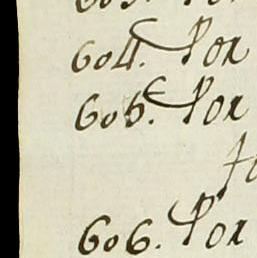 604. Por
605. Por
606. Por